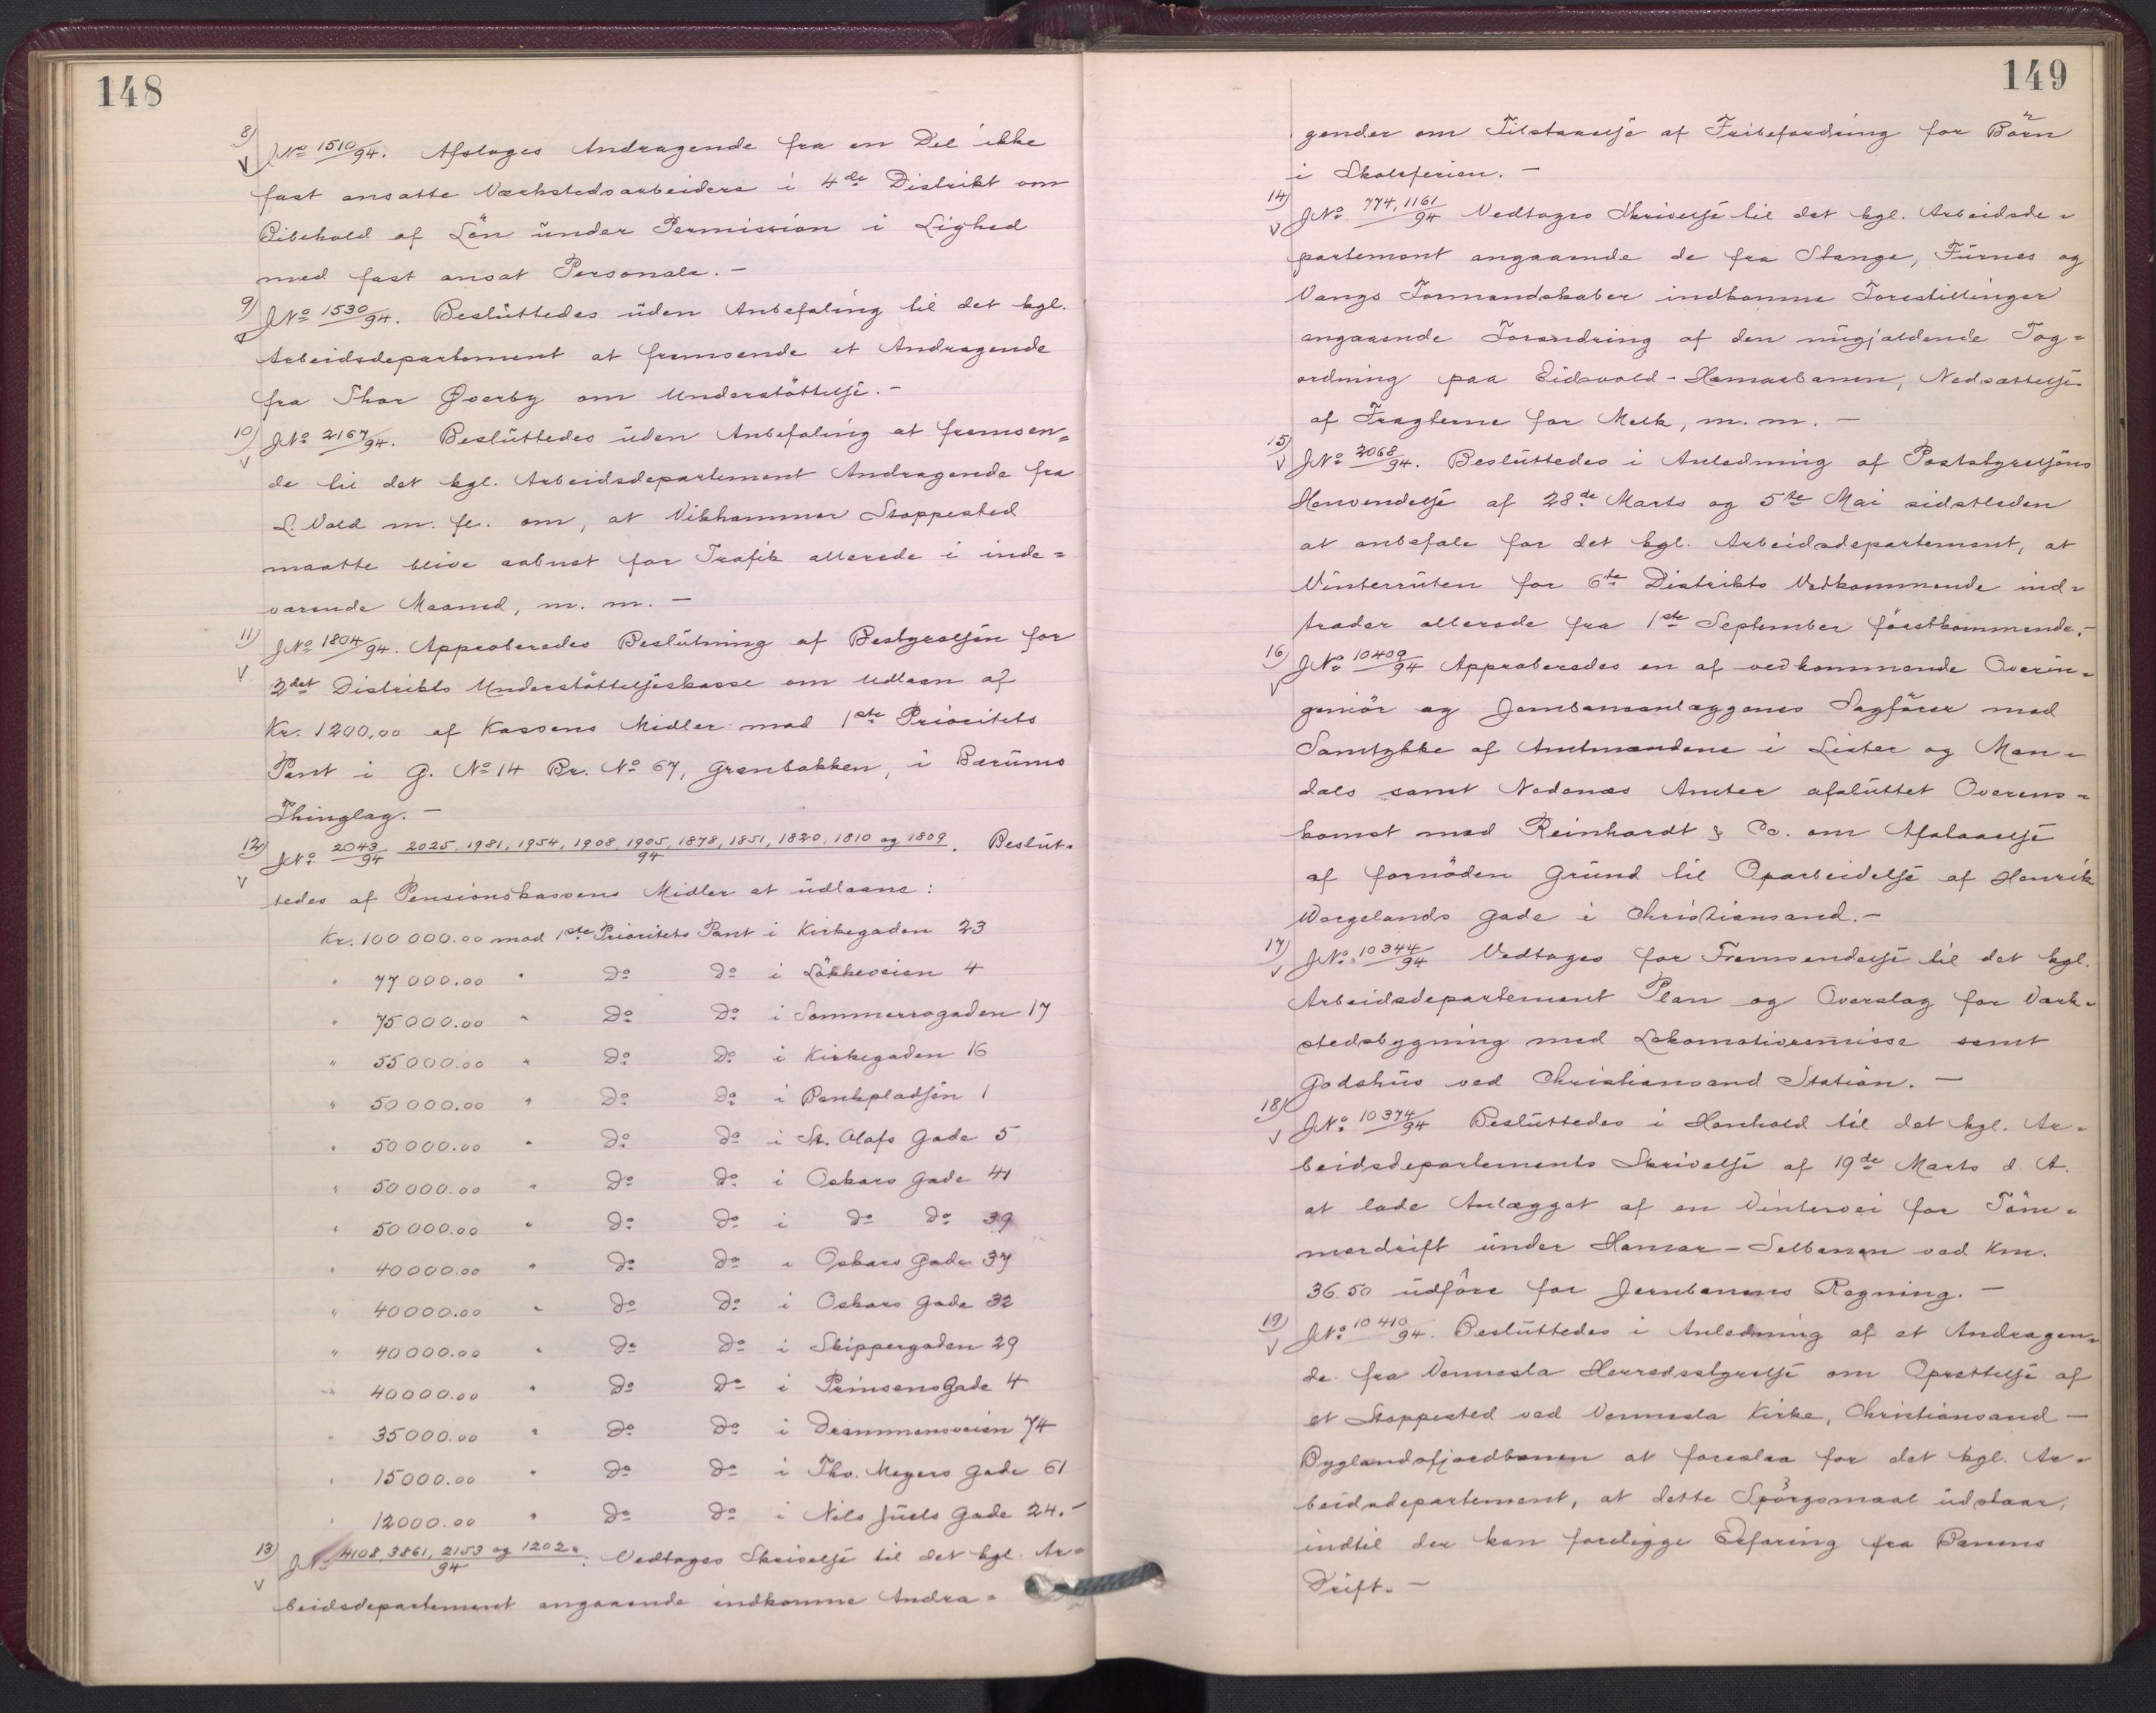 148
8) JNo 1510/94. Afslages Andragende fra en Del ikke
fast ansatte Værkstedsarbeidere i 4de Distrikt om
Bibehold af Lön under Permission i Lighed
med fast ansat Personale. –
9) JNo 1530/94. Besluttedes uden Anbefaling til det kgl.
Arbeidsdepartement at fremsende et Andragende
fra Thor Øverby om Understöttelse. –
10) JNo 2167/94. Besluttedes uden Anbefaling at fremsen=
de til det kgl. Arbeidsdepartement Andragende fra
L. Vold m. fl. om, at Vikhammer Stoppested
maatte blive aabnet for Trafik allerede i inde=
værende Maaned, m. m. –
11) JNo 1804/94. Approberedes Beslutning af Bestyrelsen for
2det Distrikts Understöttelseskasse om Udlaan af
Kr. 1200.00 af Kassens Midler mod 1ste Prioritets
Pant i G. No 14 Br. No 67, Grønbakken, i Bærums
Thinglag. –
12) JNo 2043/94 2025, 1981, 1954, 1908, 1905, 1878, 1851, 1820, 1810 og 1809/94. Beslut=
tedes af Pensionskassens Midler at udlaane:
Kr. 100 000.00 mod 1ste Prioritets Pant i Kirkegaden 23
" 77 000.00 " Do Do i Lökkeveien 4
" 75 000.00 " Do Do i Sommerrogaden 17
" 55 000.00 " Do Do i Kirkegaden 16
" 50 000.00 " Do Do i Bankpladsen 1
" 50 000.00 " Do Do i St. Olafs Gade 5
" 50 000.00 " Do Do i Oskars Gade 41
" 50 000.00 " Do Do i Do Do 39
" 40 000.00 " Do Do i Oskars Gade 37
" 40 000.00 " Do Do i Oskars Gade 32
" 40 000.00 " Do Do i Skippergaden 29
" 40 000.00 " Do Do i Prinsens Gade 4
" 35 000.00 " Do Do i Drammensveien 74
" 15 000.00 " Do Do i Thv. Meyers Gade 61
" 12 000.00 " Do Do i Nils Juels Gade 24. –
13) JNo 4108, 3861, 2153 og 1202/94. Vedtages Skrivelse til det kgl. Ar=
beidsdepartement angaaende indkomne Andra=
149
gender om Tilstaaelse af Fribefordring for Börn
i Skoleferien. –
14) JNo 774, 1161/94 Vedtages Skrivelse til det kgl. Arbeidsde=
partement angaaende de fra Stange, Furnes og
Vangs Formandskaber indkomne Forestillinger
angaaende Forandring af den nugjældende Tog=
ordning paa Eidsvold-Hamarbanen, Nedsættelse
af Fragterne for Melk, m. m. –
15) JNo 2068/94. Besluttedes i Anledning af Poststyrelsens
Henvendelse af 28de Marts og 5te Mai sidstleden
at anbefale for det kgl. Arbeidsdepartement, at
Vinterruten for 6te Distrikts Vedkommende ind=
træder allerede fra 1ste September förstkommende. –
16) JNo 10409/94 Approberedes en af vedkommende Overin=
geniör og Jernbaneanlæggenes Sagförer med
Samtykke af Amtmændene i Lister og Man=
dals samt Nedenæs Amter afsluttet Overens=
komst med Reinhardt & Co. om Afstaaelse
af fornöden Grund til Oparbeidelse af Henrik
Wergelands Gade i Christiansand. –
17) JNo 10344/94 Vedtages for Fremsendelse til det kgl.
Arbeidsdepartement Plan og Overslag for Værk=
stedsbygning med Lokomotivremisse samt
Godshus ved Christiansand Station. –
18) JNo 10374/94 Besluttedes i Henhold til det kgl. Ar=
beidsdepartements Skrivelse af 19de Marts d. A.
at lade Anlægget af en Vintervei for Töm=
merdrift under Hamar-Selbanen ved Km.
36.50 udföre for Jernbanens Regning. –
19) JNo 10410/94. Besluttedes i Anledning af et Andragen=
de fra Vennesla Herredsstyrelse om Oprettelse af
et Stoppested ved Vennesla Kirke, Christiansand –
Byglandsfjordbanen at foreslaa for det kgl. Ar=
beidsdepartement, at dette Spörgsmaal udstaar,
indtil der kan foreligge Erfaring fra Banens
Drift. –